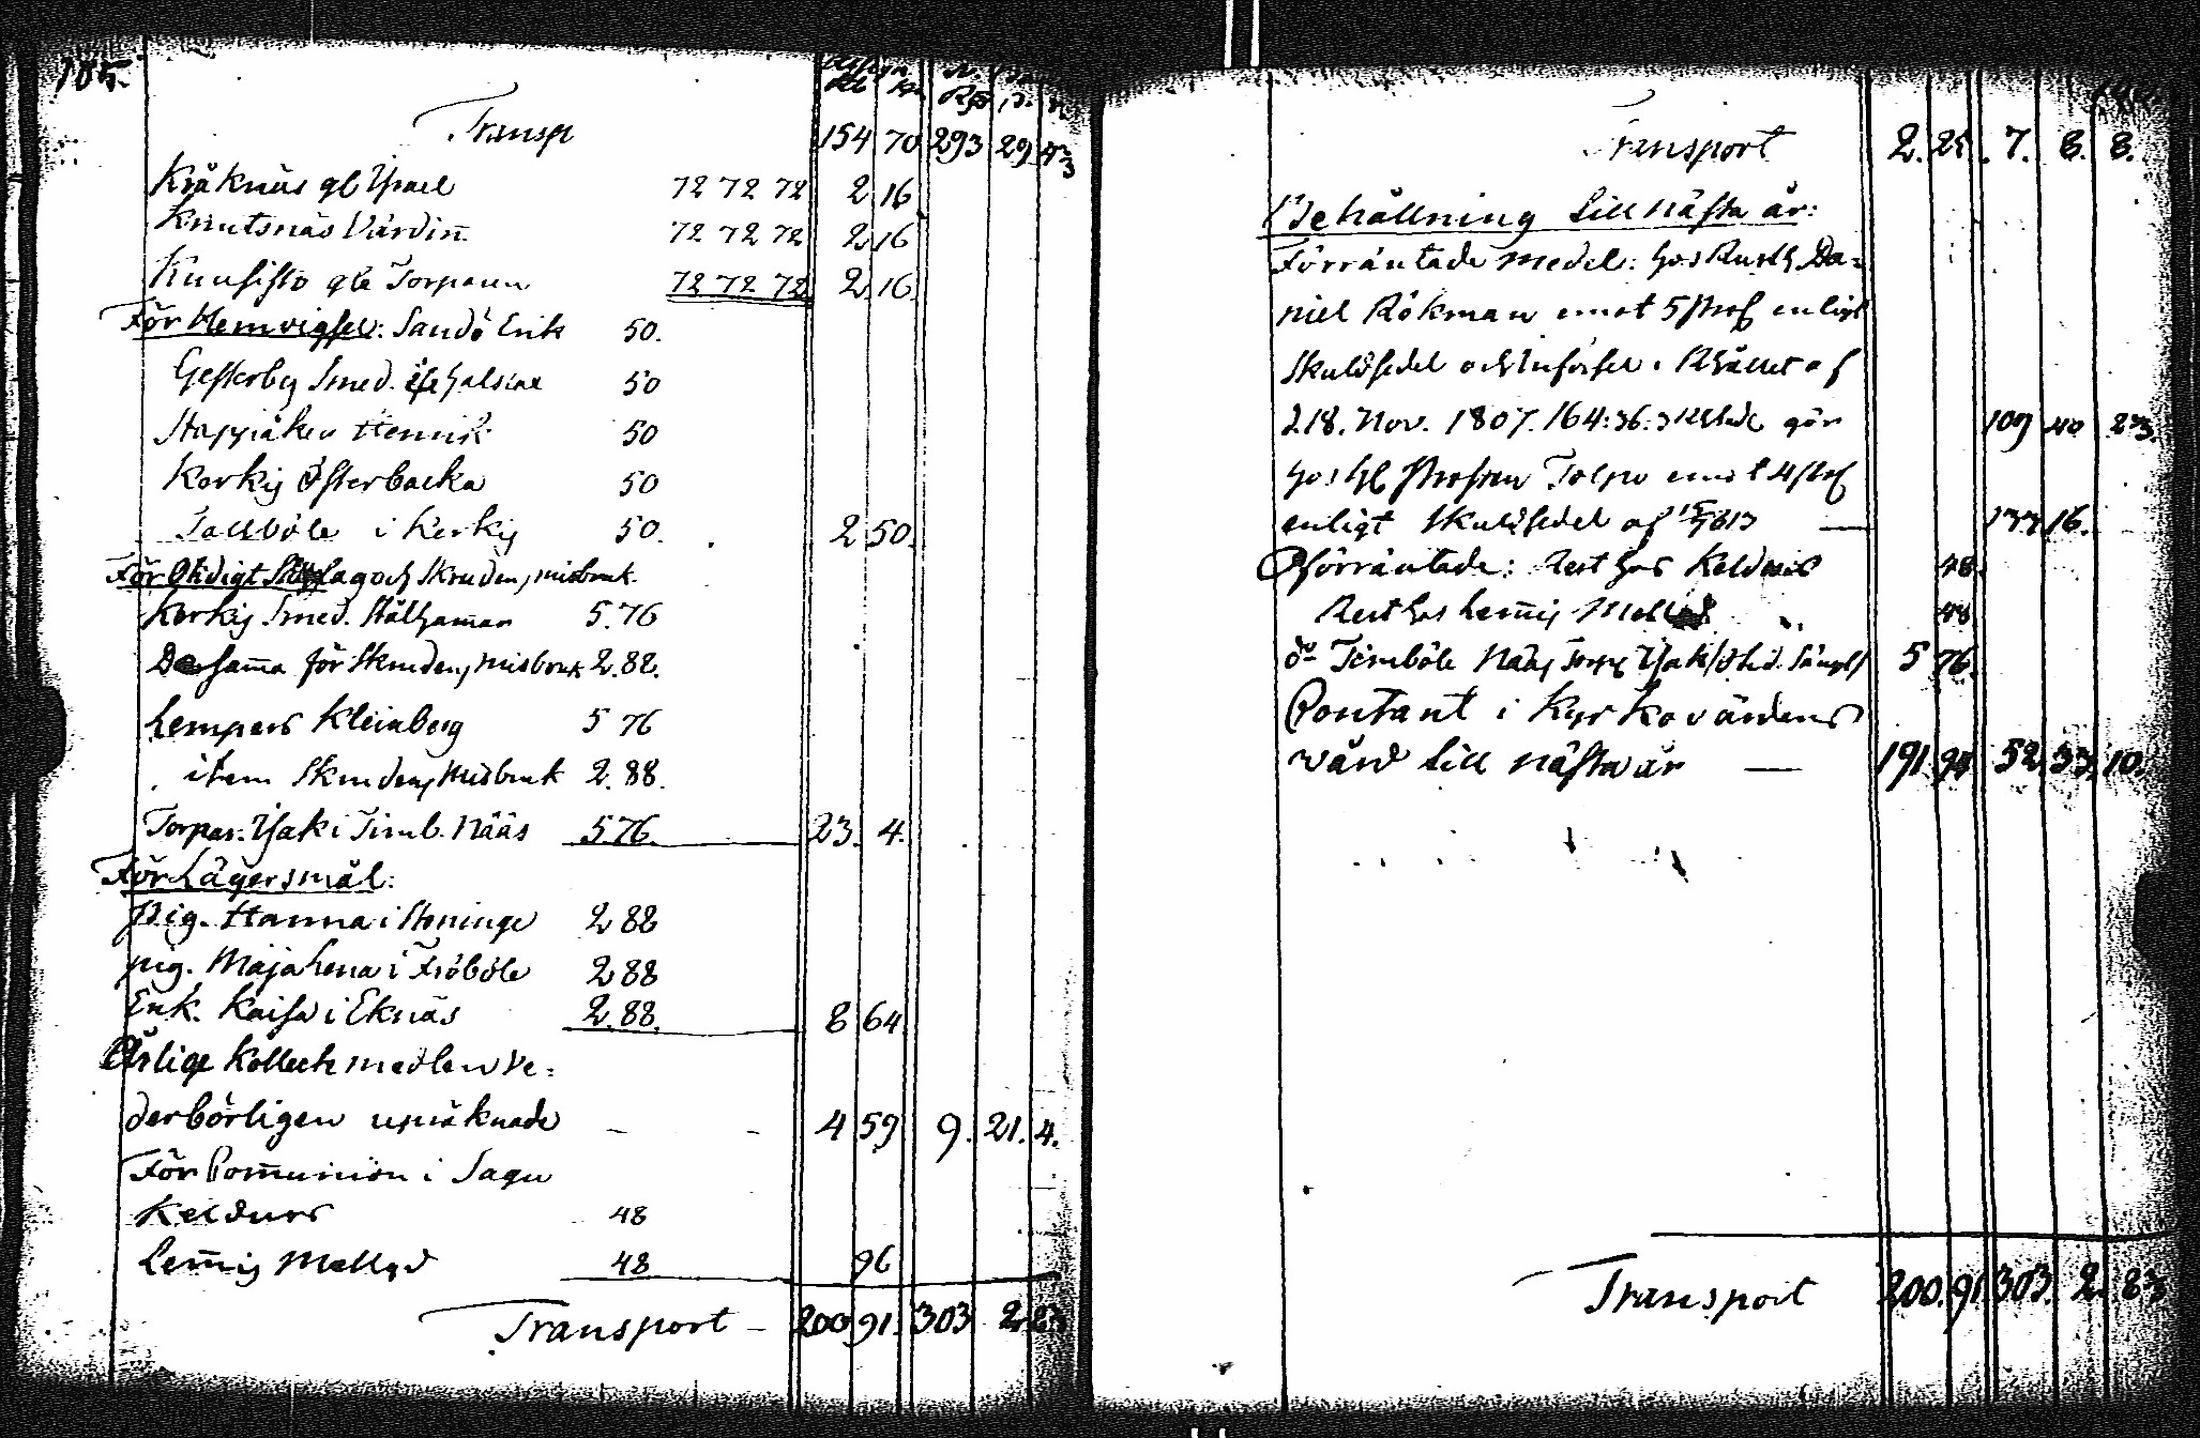 185.
Rb K. Rd
Transp 154 70 293 29 4 2/3
Kråknäs gl Israel 72 72 72 2 16
Knutsnäs Värdin̅ 72 72 72 2 16
Kuusisto gla Torparen 72 72 72 2 16
För Hemvigsel: Sandö Erik 50.
Gesterby Smed. 50
Stappåker Henrik 50
Korkis Österbacka 50
Tallböle i Korkis 50. 2 50.
För Otidigt lag och Skruden, misbruk.
Korkis Smed. Stålham̅ar 5.76
Dersam̅a för Skruden, misbruk 2.88.
Lempers Kleinberg 5 76
item Skruden, Misbruk 2.88.
Torpar. Isak i Timb. Nääs 5.76. 23. 4.
För Lägersmål:
Pig. Hanna i Heninge 2 88
pig. Maja Lena i Fröböle 2 88
Enk. Kaisa i Eknäs 2.88. 8 64.
Årlige Kollectmedlen Ve=
derbörligen upräknade 4 59 9. 21. 4.
För Com̅union i Sagu
Keldurs 48
Lem̅is Mellgd 48 96
Transport 200 91. 303 2. 8 2/3
Transport 2. 25. 7. 8. 8.
Behållning till nästa år:
Förräntade medel: hos Rusth. Da=
niel Rökman emot 5 Proc enligt
Skuldsedel och Införsel i Rättet af
d. 18. Nov. 1807. 164:36:3 gör 109 40 2 2/3.
hos Hl Prosten Tolpo emot 4 proc
enligt Skuldsedel af 133 16.
Oförräntade: Rest hos Keldurs 48.
Rest hos Lem̅is Mellgd 48
Timböle Nääs Torp. Isak 5 76.
Contant i Kyrkovärdens
vård till nästa år 191. 94 52 33. 10.
Transport 200. 91 303. 2. 8 2/3